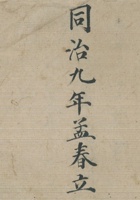 同治九年孟春立